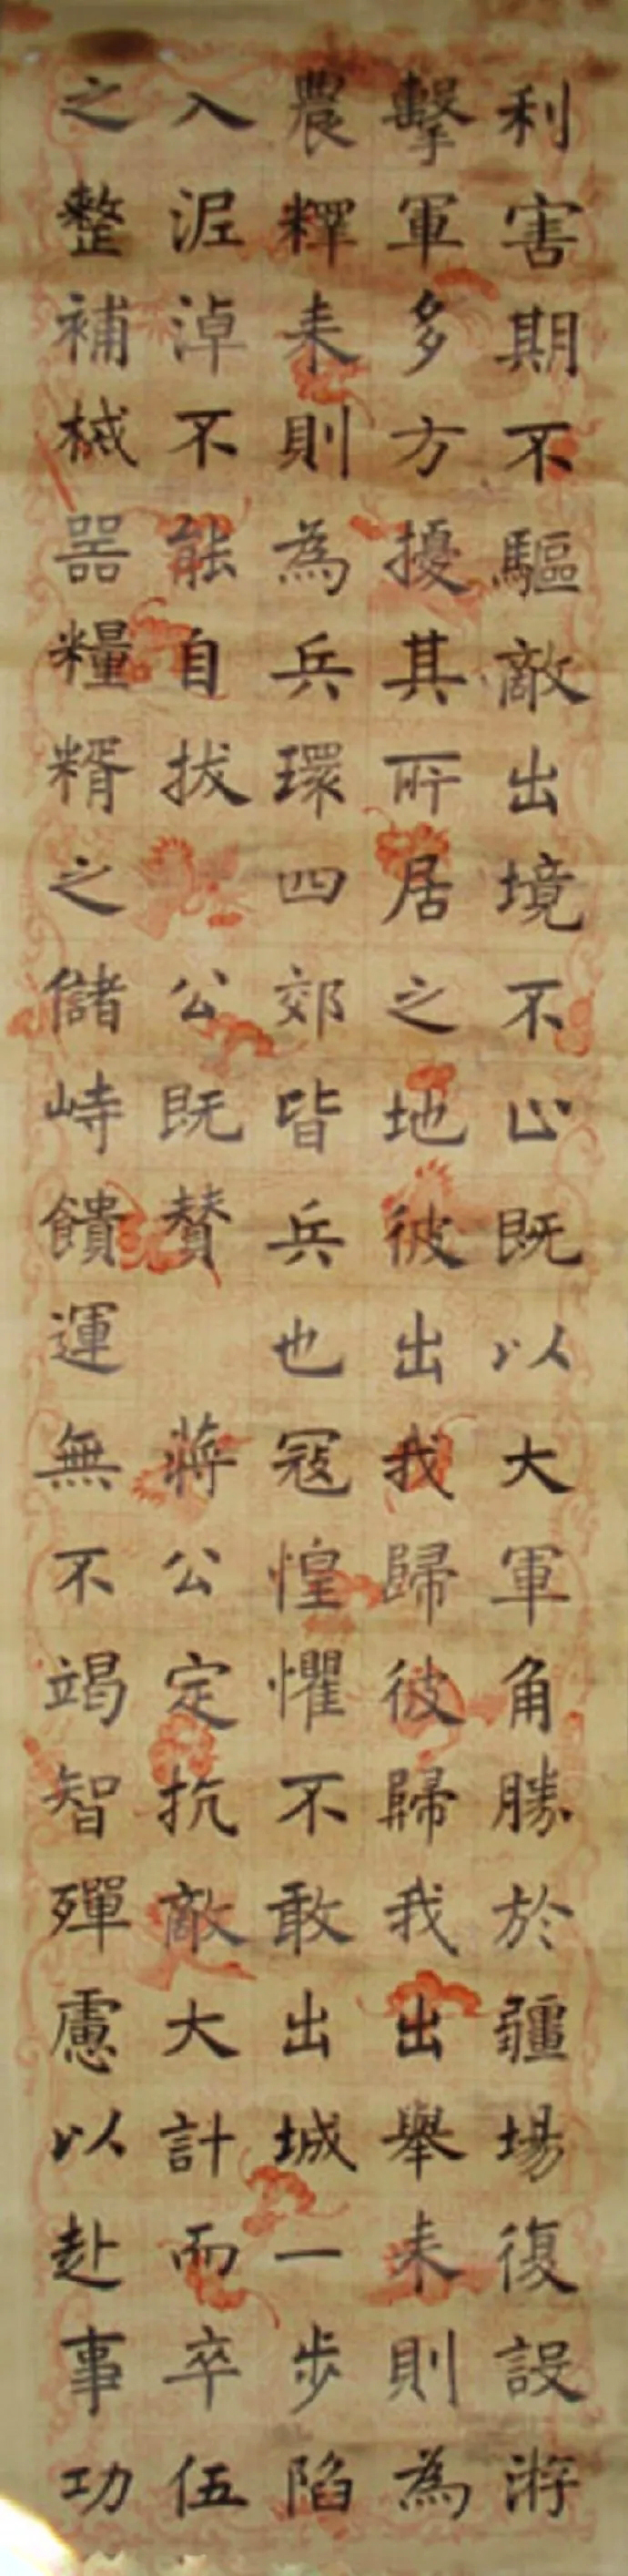 利害期不驅敵出境不止既以大軍角勝於疆場復設游
擊軍多方擾其所居之地彼出我歸彼歸我出舉耒則為
農釋耒則為兵環四郊皆兵也寇惶懼不敢出城一步陷
入泥淖不能自拔 公既贊 蔣公定抗敵大計而卒伍
之整補械器糧糈之儲峙饋運無不竭智殫慮以赴事功